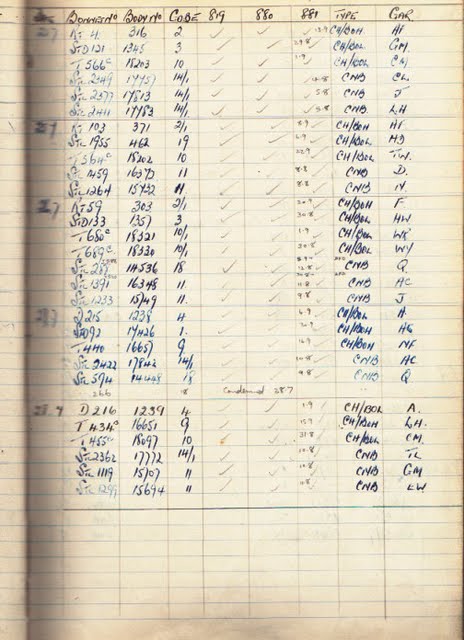 BONNET NO BODY NO CODE 819 880 881 TYPE GAR.
27 RT 4 316 2 ✓ ✓ ✓ CH/BOH
STD 121 1345 3 ✓ ✓ 29.8 ✓ CH/BOL GM.
T 566 18203 10 ✓ ✓ 1.9 ✓ CH/BOL CM
STL 2349 17757 14/1 ✓ ✓ ✓ CNB CL.
STL 2377 17813 14/1 ✓ ✓ 5.8 ✓ CNB J
STL 2411 17783 14/1 ✓ ✓ 5.8 ✓ CNB LH
27 RT 103 371 2/1 ✓ ✓ 8.9 ✓ CH/BOH
STL 1955 462 19 ✓ ✓ 6.9 ✓ CH/BOL HD
T 564 18202 10 ✓ ✓ 22.9 ✓ CH/BOL TW.
STL 1459 16373 11 ✓ ✓ 8.8 ✓ CNB D.
STL 1264 15732 11 ✓ ✓ 8.8 ✓ CNB N.
27 RT 59 303 2/1 ✓ ✓ 20.9 ✓ CH/BOH F
STD 133 1357 3 ✓ ✓ 30.8 ✓ CH/BOL HW
T 680 18321 10/1 ✓ ✓ 1.9 ✓ CH/BOL WR
T 689 18330 10/1 ✓ ✓ 30.8 ✓ CH/BOL WY
STL 14536 18 ✓ ✓ 12.8 ✓ CNB Q
STL 1391 16348 11 ✓ ✓ ✓ CNB AC
STL 1233 15749 11 ✓ ✓ 9.8 ✓ CNB J
27 D 215 1238 4 ✓ ✓ 6.9 ✓ CH/BOL A
STD 92 17426 1. ✓ ✓ ✓ CH/BOH HG
T 440 16657 9 ✓ ✓ 16.9 ✓ CH/BOH NF
STL 2422 17842 14/1 ✓ ✓ 10.8 ✓ CNB AC
STL 574 18 ✓ ✓ 9.8 ✓ CNB Q
266 8 Condemned 28.7
28.7 D 216 1239 4 ✓ ✓ 1.9 ✓ CH/BOL A.
T 434c 16651 9 ✓ ✓ 15.9 ✓ CH/BOH LH.
T 455c 18097 10 ✓ ✓ 31.8 ✓ CH/BOL CM.
STL 2362 17772 14/1 ✓ ✓ 10.8 ✓ CNB TL
STL 1119 15707 11 ✓ ✓ 10.8 ✓ CNB GM
STL 1299 15694 11 ✓ ✓ ✓ CNB EW